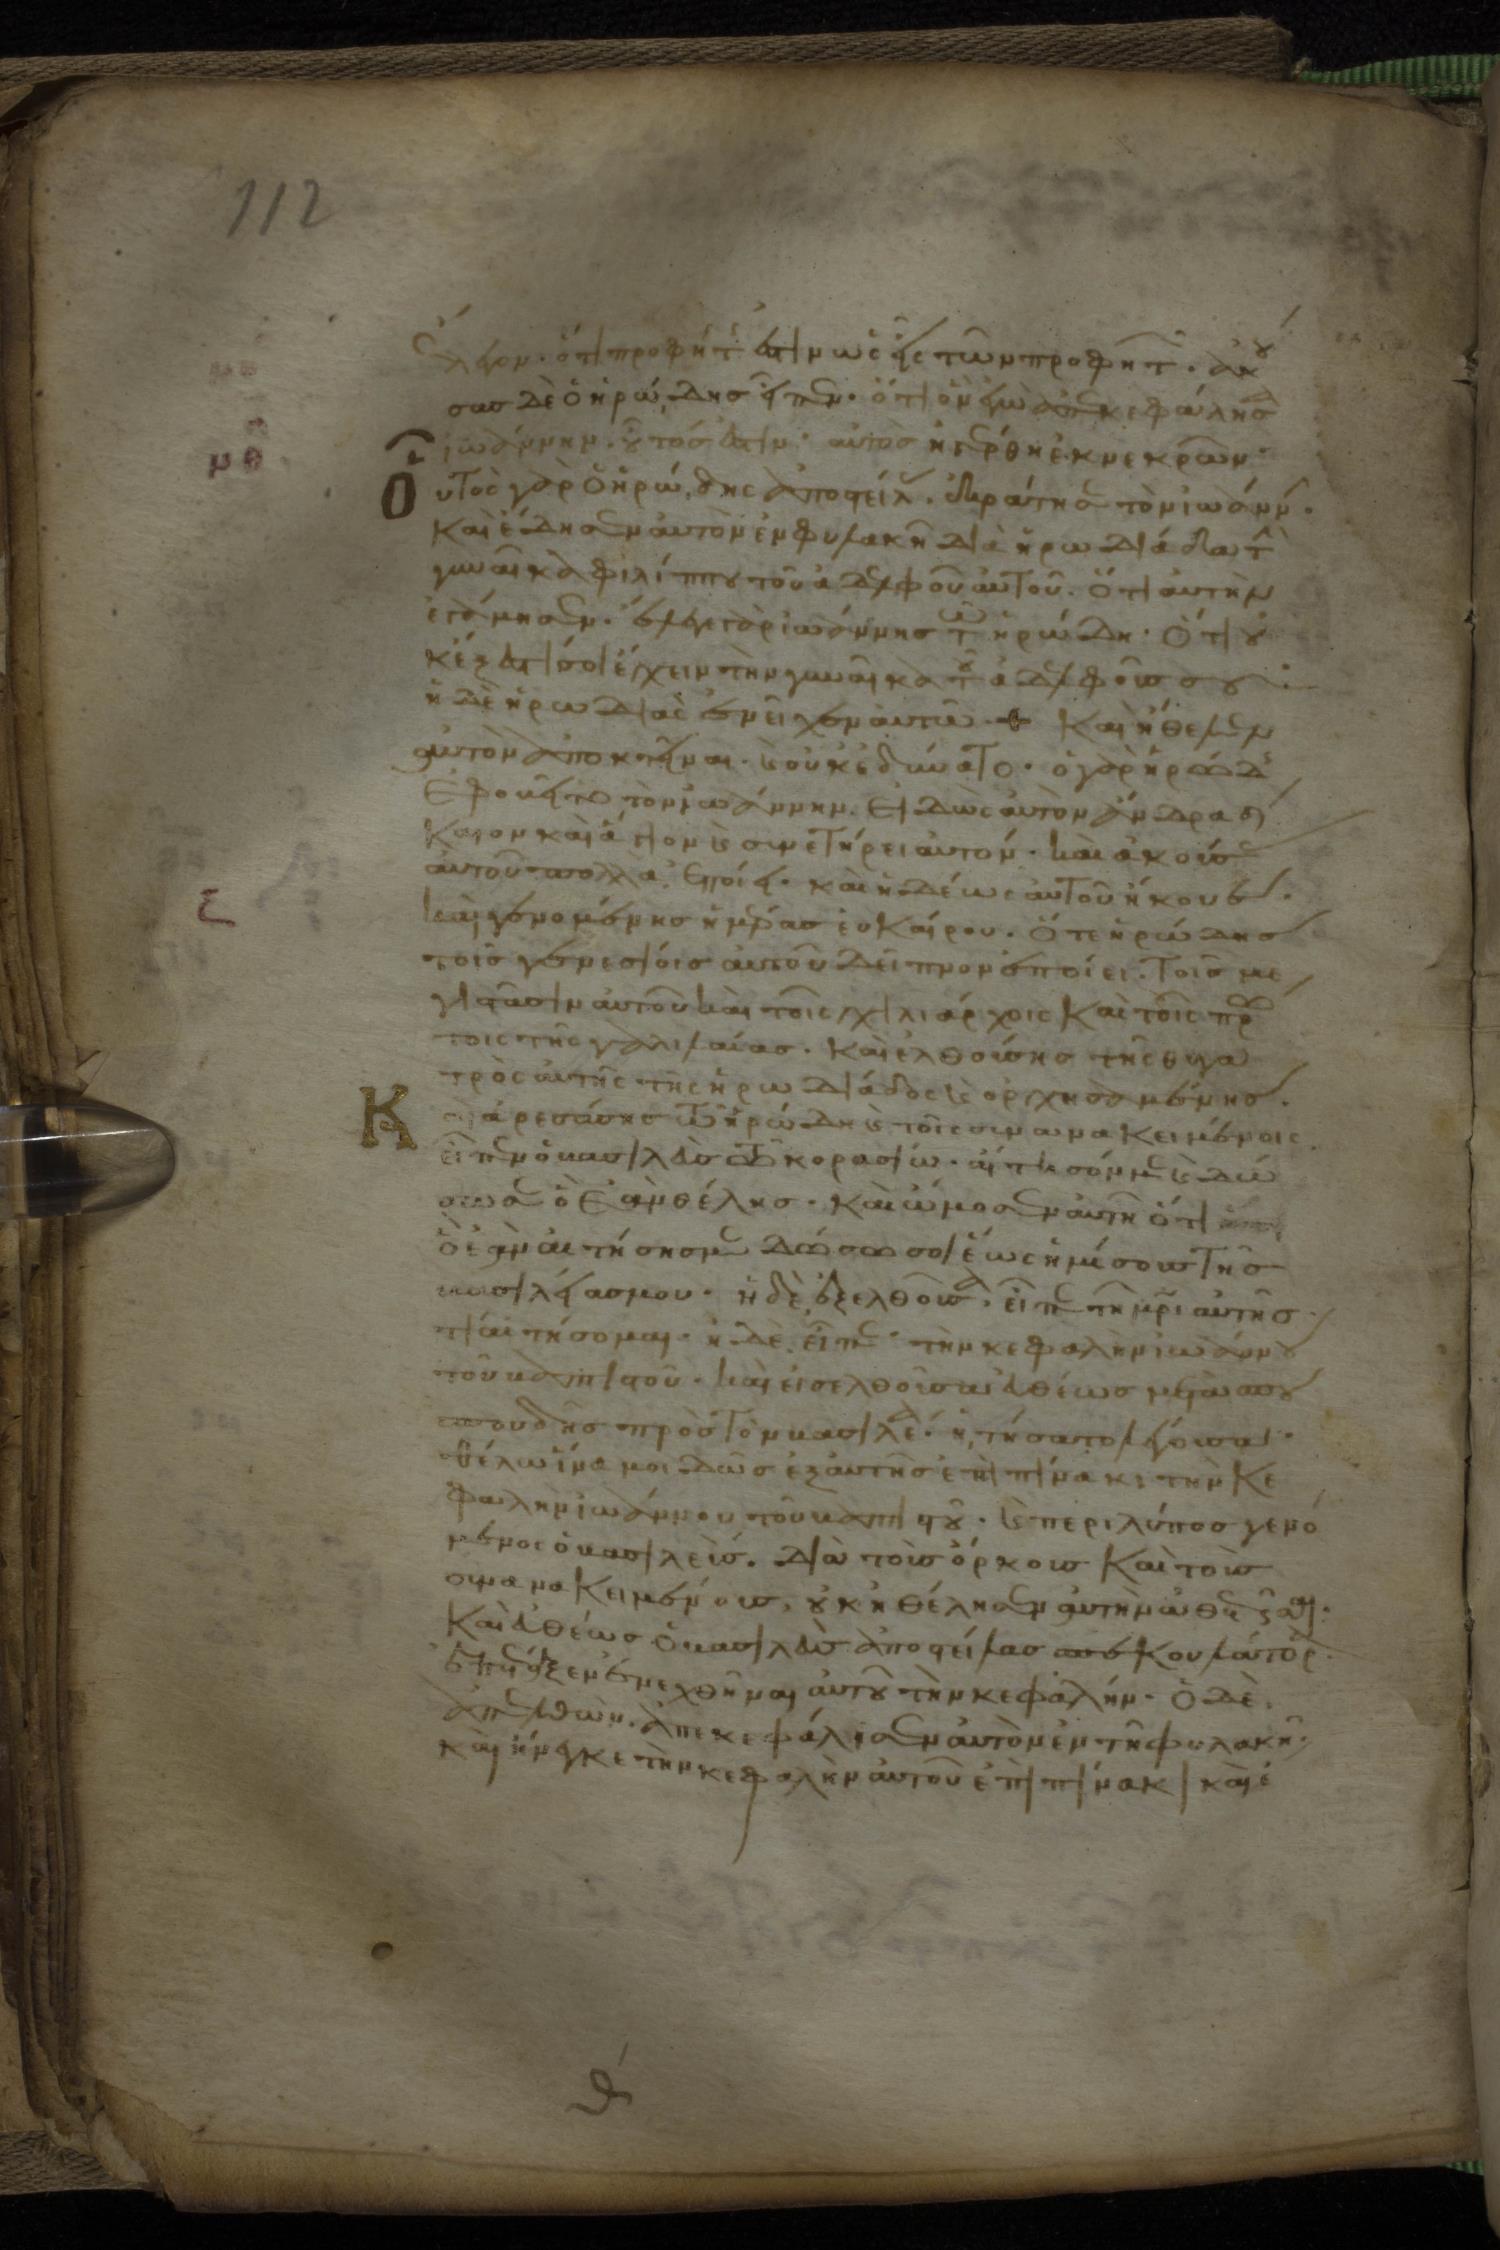 112
ἔλεγον· ὅτι προφήτ ἐστὶν ὡς εἷς τῶν προφητ. ἀκου
σας δὲ ὁ ἡρώδης εἶπεν· ὅτι ὃν ἐγὼ ἀπεκεφάλησα
ἰωάννην. οὗτός ἐστιν· αὐτὸς ἠγέρθη ἐκ νεκρῶν·
μθ
Οὗτος γὰρ ὁ ἡρώδης ἀποστείλας. ἐκράτησε τὸν ἰωάννην.
καὶ ἔδησεν αὐτὸν ἐν φυλακῆ διὰ ἡρωδιάδα τ
γυναῖκα φιλίππου τοῦ ἀδελφοῦ αὐτοῦ. ὅτι αὐτὴν
ἐγάμησεν. ἔλεγε γὰρ ἰωάννης τῶ ἡρώδη· ὅτι οὐ
κ ἔξεστι σοὶ ἔχειν τὴν γυναῖκα τοῦ ἀδελφοῦ σου
ἡ δὲ ἡρωδιὰς ἐνεῖχεν αὐτῶ + καὶ ἤθελεν
αὐτὸν ἀποκτεῖναι. κ οὐκ ἐδύνατο. ὁ γὰρ ἡρώδ
ἐφοβεῖτο τὸν ἰωάννην. εἰδὼς αὐτὸν ἄνδρα δί
καιον καὶ ἅγιον κ συνετήρει αὐτόν. καὶ ἀκούσ
αὐτοῦ πολλὰ ἐποίει. καὶ ἡδέως αὐτοῦ ἤκουεν.
ξ
καὶ γενομένης ἡμέρας εὐκαίρου. ὅτε ἡρώδης
τοῖς γενεσίοις αὐτοῦ δεῖπνον ἐποίει. τοῖς με
γιστᾶσιν αὐτοῦ καὶ τοῖς χιλιάρχοις καὶ τοῖς πρ
τοις τῆς γαλιλαίας. καὶ ἐλθούσης τῆς θυγα
τρὸς αὐτῆς τῆς ἡρωδιάδος κ ὀρχησαμένης.
Καὶ ἀρεσάσης τῶ ἡρώδη κ τοῖς συνανακειμένοις.
εἶπεν ὁ βασιλεὺς τῶ κορασίω. αἴτησόν με κ δώ
σω σοι ὃ ἐὰν θέλης. καὶ ὤμοσεν αὐτῆ ὅτι
ὃ ἐὰν αἰτήσης με δώσω σοὶ ἕως ἡμίσους τῆς
βασιλείας μου. ἡ δὲ ἐξελθοῦσα. εἶπε τῆ μρι αὐτῆς
τί αἰτήσομαι. ἡ δὲ εἶπε. τὴν κεφαλὴν ἰωάννου
τοῦ βαπτιστοῦ. καὶ εἰσελθοῦσα εὐθέως μετὰ
σπουδῆς πρὸς τὸν βασιλέα. ἠτήσατο λέγουσα.
θέλω ἵνα μοι δῶς ἐξαυτῆς ἐπὶ πίνακι τὴν κε
φαλὴν ἰωάννου τοῦ βαπτιστοῦ. κ περίλυπος γενό
μενος ὁ βασιλεύς. διὰ τοὺς ὅρκους καὶ τοὺς
συνανακειμένους, οὐκ ἠθέλησεν αὐτὴν ἀθετῆσαι.
καὶ εὐθέως ὁ βασιλεὺς ἀποστείλας σπεκουλάτορ
ἐπέταξεν ἐνεχθῆναι αὐτοῦ τὴν κεφαλήν. ὁ δὲ
ἀπελθὼν. ἀπεκεφάλισεν αὐτὸν ἐν τῆ φυλακῆ
καὶ ἤνεγκε τὴν κεφαλὴν αὐτοῦ ἐπὶ πίνακι καὶ ἔ